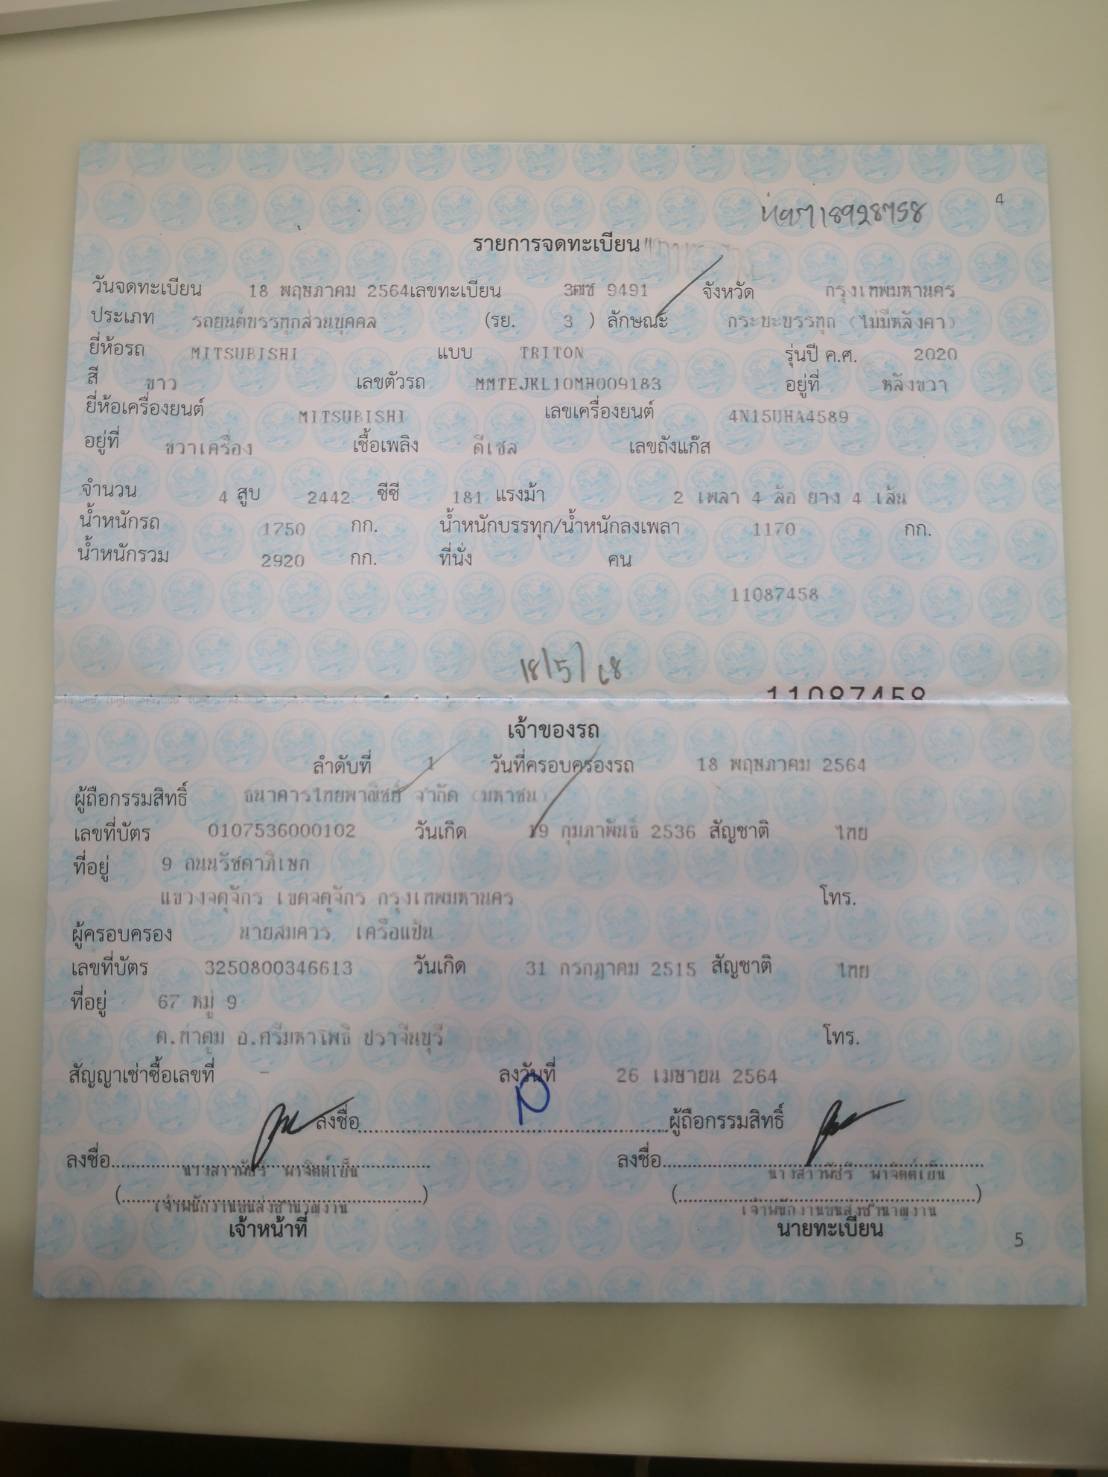 4
รายการจดทะเบียน
วันจดทะเบียน 18 พฤษภาคม 2564 เลขทะเบียน 3ฒซ 9491 จังหวัด กรุงเทพมหานคร
ประเภท รถยนต์บรรทุกส่วนบุคคล (รย. 3 ) ลักษณะ กระบะบรรทุก (ไม่มีหลังคา)
ยี่ห้อรถ MITSUBISHI แบบ TRITON รุ่นปี ค.ศ. 2020
สี ขาว เลขตัวรถ MMTEJKL10MH009183 อยู่ที่ หลังขวา
ยี่ห้อเครื่องยนต์ MITSUBISHI เลขเครื่องยนต์ 4N15UHA4589
อยู่ที่ ขวาเครื่อง เชื้อเพลิง ดีเซล เลขถังแก๊ส
จำนวน 4 สูบ 2442 ซีซี 181 แรงม้า 2 เพลา 4 ล้อ ยาง 4 เส้น
น้ำหนักรถ 1750 กก. น้ำหนักบรรทุก/น้ำหนักลงเพลา 1170 กก.
น้ำหนักรวม 2920 กก. ที่นั่ง คน
11087458
18/5/68
11087458
เจ้าของรถ
ลำดับที่ 1 วันที่ครอบครองรถ 18 พฤษภาคม 2564
ผู้ถือกรรมสิทธิ์ ธนาคารไทยพาณิชย์ จำกัด (มหาชน)
เลขที่บัตร 0107536000102 วันเกิด 19 กุมภาพันธ์ 2536 สัญชาติ ไทย
ที่อยู่ 9 ถนนรัชดาภิเษก
แขวงจตุจักร เขตจตุจักร กรุงเทพมหานคร โทร.
ผู้ครอบครอง นายสมควร เครือแป้น
เลขที่บัตร 3250800346613 วันเกิด 31 กรกฎาคม 2515 สัญชาติ ไทย
ที่อยู่ 67 หมู่ 9
ต.ท่าตูม อ.ศรีมหาโพธิ ปราจีนบุรี โทร.
สัญญาเช่าซื้อเลขที่ - ลงวันที่ 26 เมษายน 2564
ลงชื่อ ผู้ถือกรรมสิทธิ์
ลงชื่อ ลงชื่อ
นางสาวพัชรี นางสาวพัชรี
(เจ้าพนักงานขนส่งชำนาญงาน) (เจ้าพนักงานขนส่งชำนาญงาน)
เจ้าหน้าที่ นายทะเบียน
5